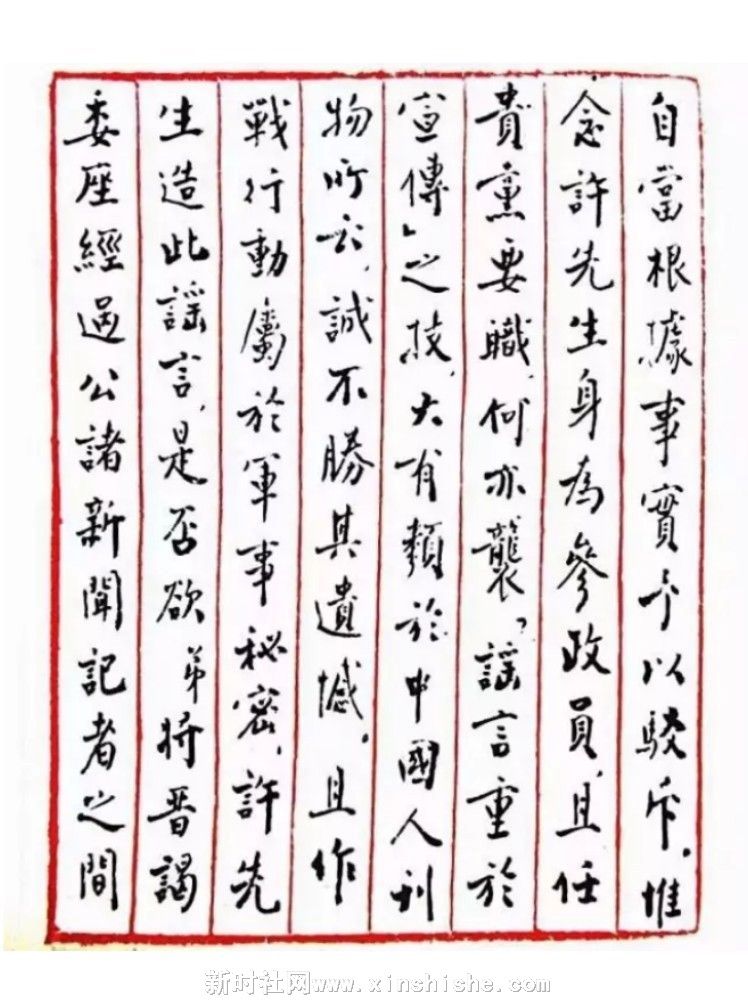 自當根據事實予以駁斥,惟
念許先生身為參政員,且任
貴黨要職,何亦襲「謠言重於
宣傳」之技,大有類於中國人刊
物所云,誠不勝其遺憾。且作
戰行動屬於軍事秘密,許先
生造此謠言,是否欲弟將晋謁
委座經過公諸新聞記者之間
新时社网www.xinshishe.com